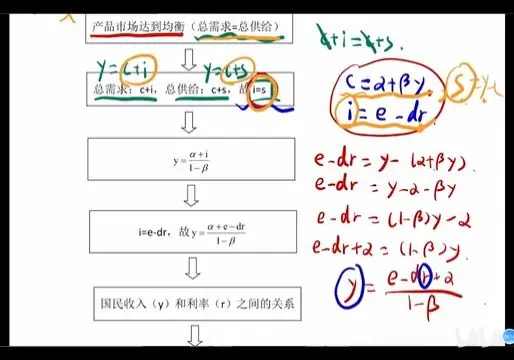 产品市场达到均衡（总需求=总供给）
y=c+i
y=c+s
总需求：c+i，总供给：c+s，故i=s
y=α+i/1-β
i=e-dr，故y=α+e-dr/1-β
国民收入（y）和利率（r）之间的关系
c+i=c+s.
c=α+βy
s=y-c
i=e-dr
e-dr=y-(α+βy)
e-dr=y-α-βy
e-dr=(1-β)y-α
e-dr+α=(1-β)y
y=e-dr+α/1-β